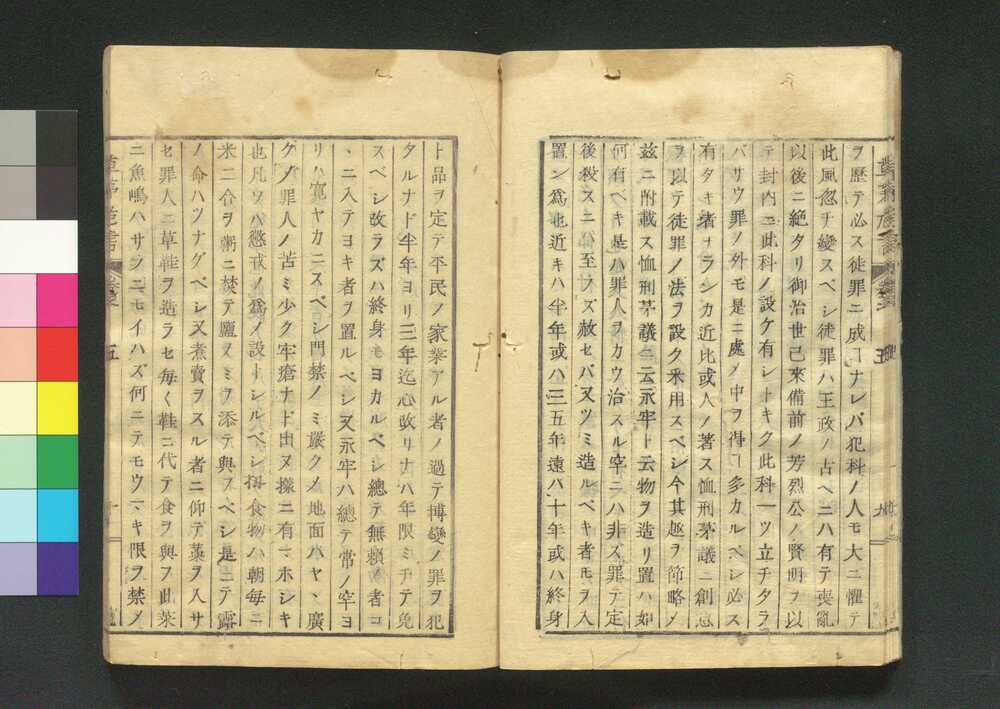 ヲ歴テ必ス徒罪ニ處ヿナレバ犯科ノ人モ大ニ懼テ
此風忽チ變スベシ徒罪ハ王政ノ古ヘニハ有テ喪亂
以後ニ絶タリ御治世己來備前ノ芳烈公ノ賢明ヲ以
テ封内ニ此科ノ設ケ有シトキク此科一ツ立チタラ
バリウ罪ノ外モ是ニ處ノ中ヲ得ヿ多カルベシ必ス
有タキ者ヲラシカ近比或人ノ著ス恤刑茅議ニ創意
ヲ以テ徒罪ノ法ヲ設ク釆用スベシ今其趣ヲ節略メ
玆ニ附載ス恤刑茅議ニ云永牢ト云物ヲ造リ置ハ如
何有ベキ是ハ罪人ヲカウ治スル牢ニハ非ズ罪テ定
後殺スニ至ラズ赦セバ又ツミ造ルベキ者モヲ入
置ン爲也近キハ半年或ハ三五年遠ハ十年或ハ終身
ト品ヲ定テ平民ノ家業アル者ノ過テ博變ノ罪ヲ犯
タルナド半年ヨリ三年迄心改リナハ年限ミチテ免
スベシ改ラズハ終身モヨカルベシ總テ無頼ノ者コ
ヽニ入テヨキ者ヲ置ルベシ又永牢ハ總テ常ノ牢ヨ
リハ寛ヤカニスベシ門禁ノミ嚴クメ地面ハヤヽ廣
クメ罪人ノ苦ミ少ク牢瘡ナド出ヌ樣ニ有マホシキ
也凡ソハ懲戒ノ爲ノ設トシルベシ扨食物ハ朝毎ニ
米二合ヲ粥ニ焚テ鹽ヌミヲ添テ與フベシ是ニテ露
ノ命ハツナグベシ又煮賣ヲスル者ニ仰テ藁ヲ入サ
セ罪人ニ草鞋ヲ造ラセ毎く鞋ニ代テ食ヲ與フ此菜
ニ魚嶋ハサラニモイハズ何ニテモウマキ限ヲ禁メ
草茅危言
五
十